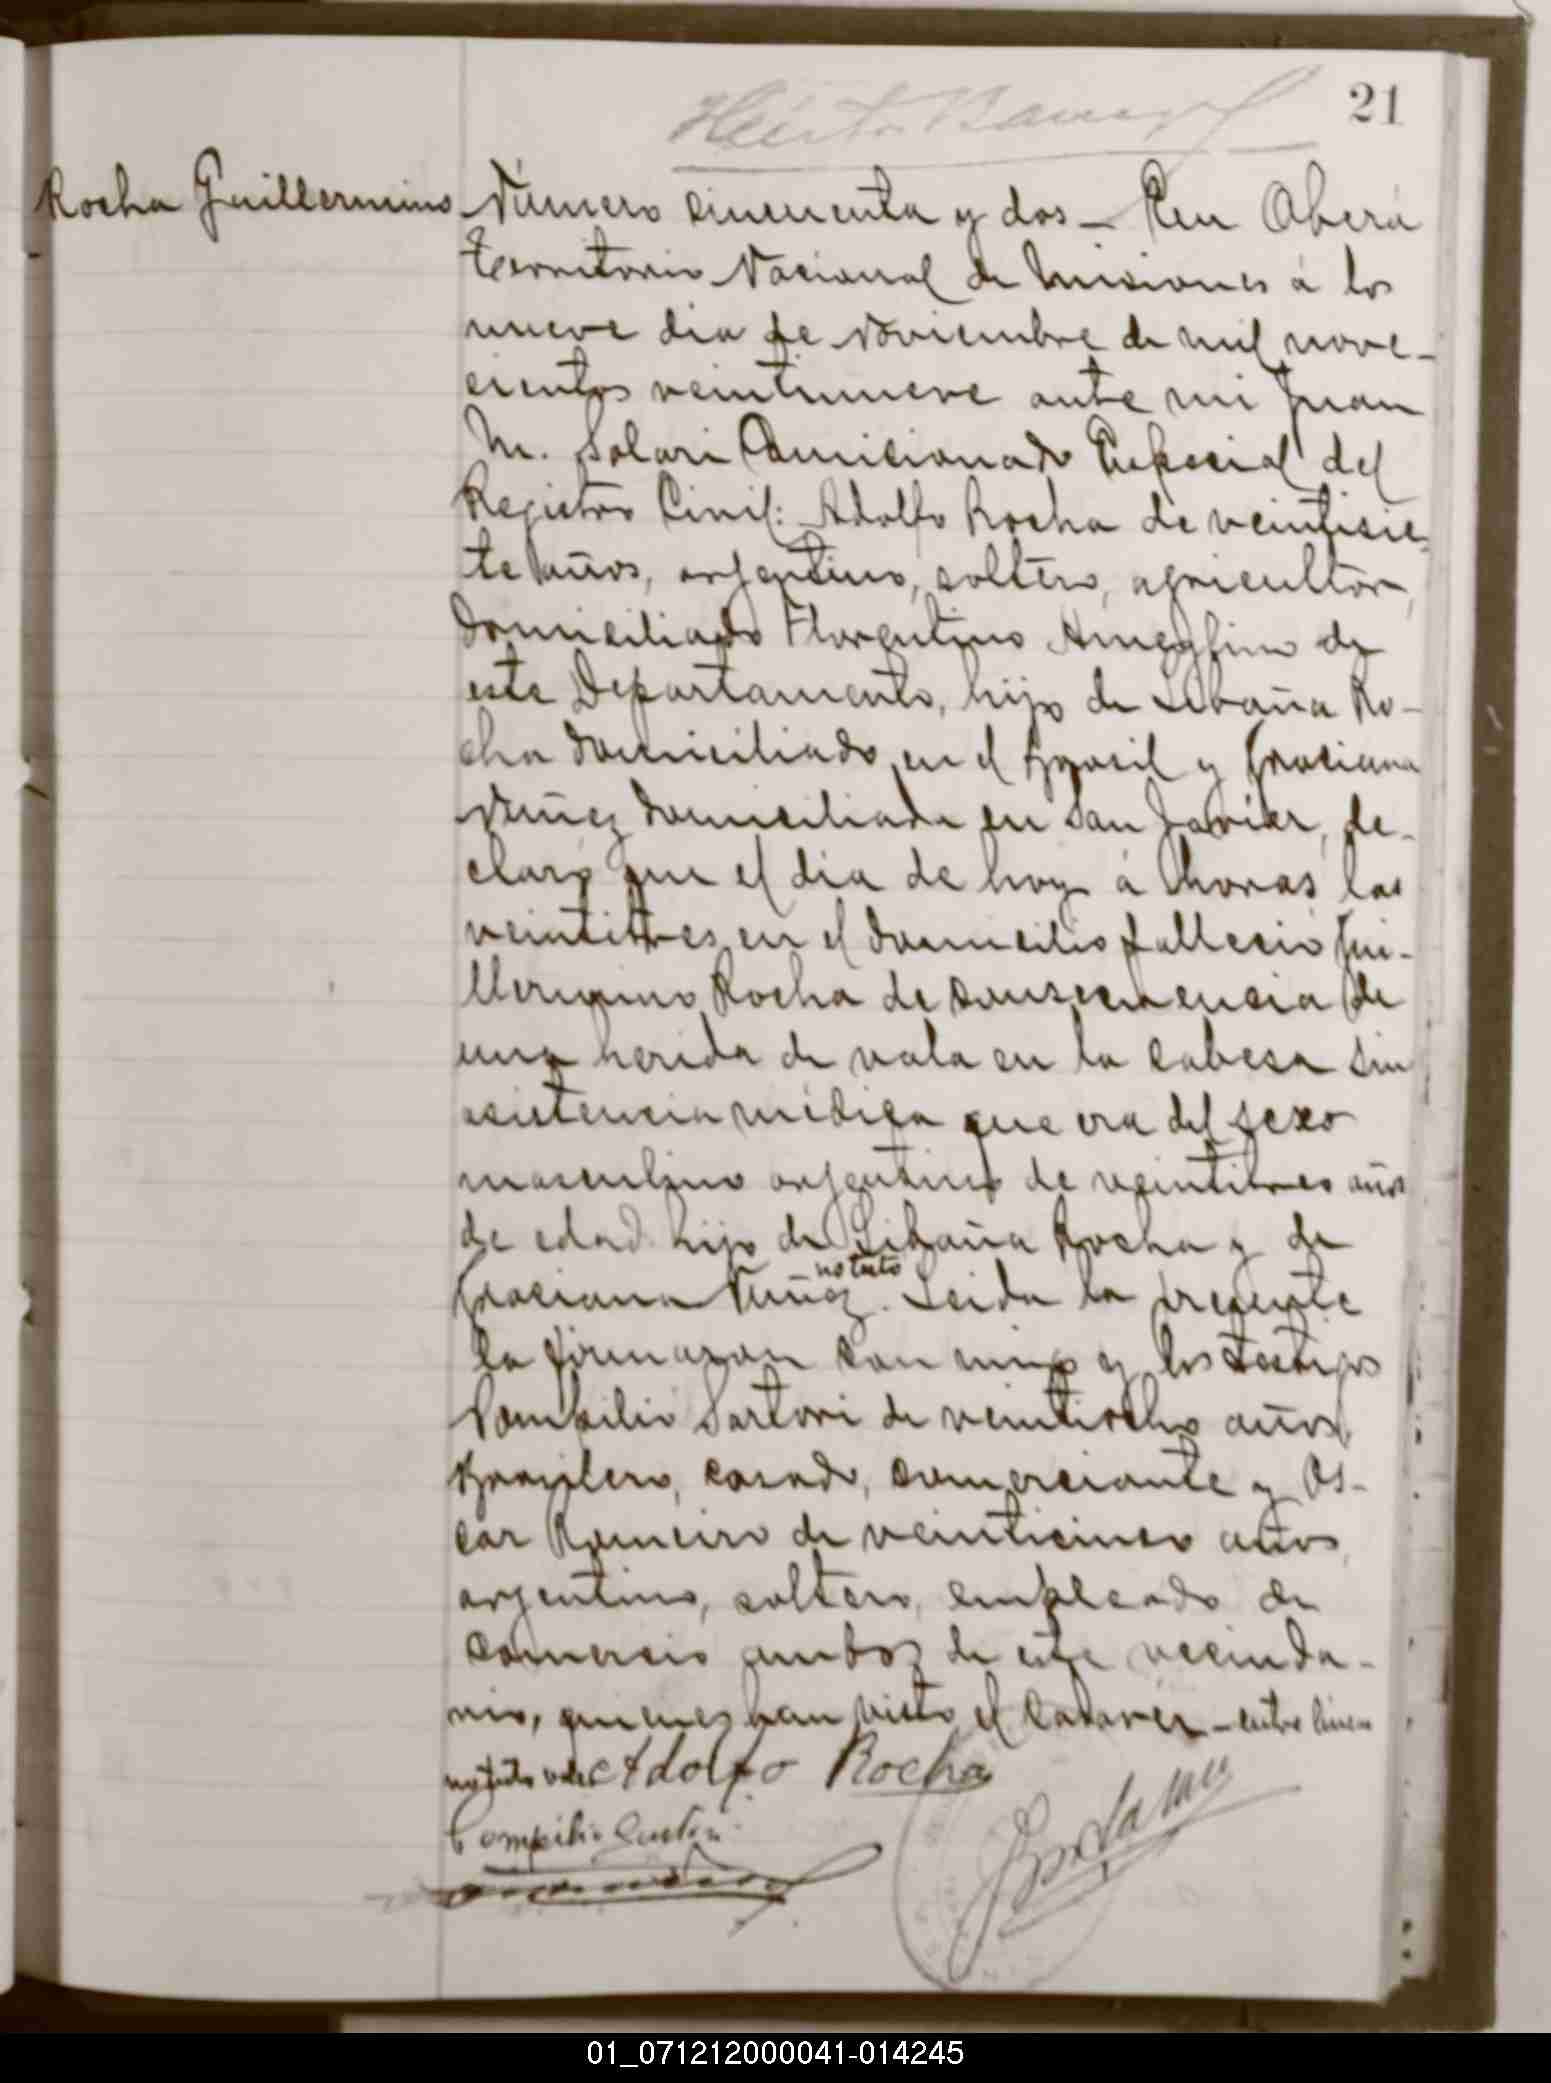 21
Rocha Guillermino
Número cincuenta y dos – En Oberá
Territorio Nacional de Misiones á los
nueve dia de Noviembre de mil nove-
cientos veintinueve ante mi Juan
M. Solari Comicionado Especial del
Registro Civil: Adolfo Rocha de veintisie-
te años, argentino, soltero, agricultor,
domiciliado Florentino Ameghino de
este Departamento, hijo de Libaña Ro-
cha domiciliado en el Brasil y Graciana
Nuñez domiciliada en San Javier, de-
claró que el dia de hoy á horas las
veintitres en el domicilio fallecio Gui-
llermino Rocha de consecuencia de
una herida de vala en la cabesa sin
asistencia médica que era del sexo
masculino argentino de veintitres años
de edad hijo de Libaña Rocha y de
Graciana Nuñez. Leida la presente
la firmaron con migo y los testigos
Pompilio Sartori de veintiocho años,
Brasilero, casado, comerciante y Os-
car Romeiro de veinticinco años,
argentino, soltero, empleado de
comercio ambos de este vecinda-
rio, quienes han visto el cadaver – entre lineas
Adolfo Rocha
Pompilio Sartori
01_071212000041-014245